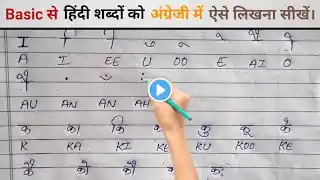 Basic से हिंदी शब्दों को अंग्रेजी में ऐसे लिखना सीखें।
A I EE U OO E AI O
AU AN AN AH
क का कि कु कू के
K KA KI KU KOO KE
कै को कौ